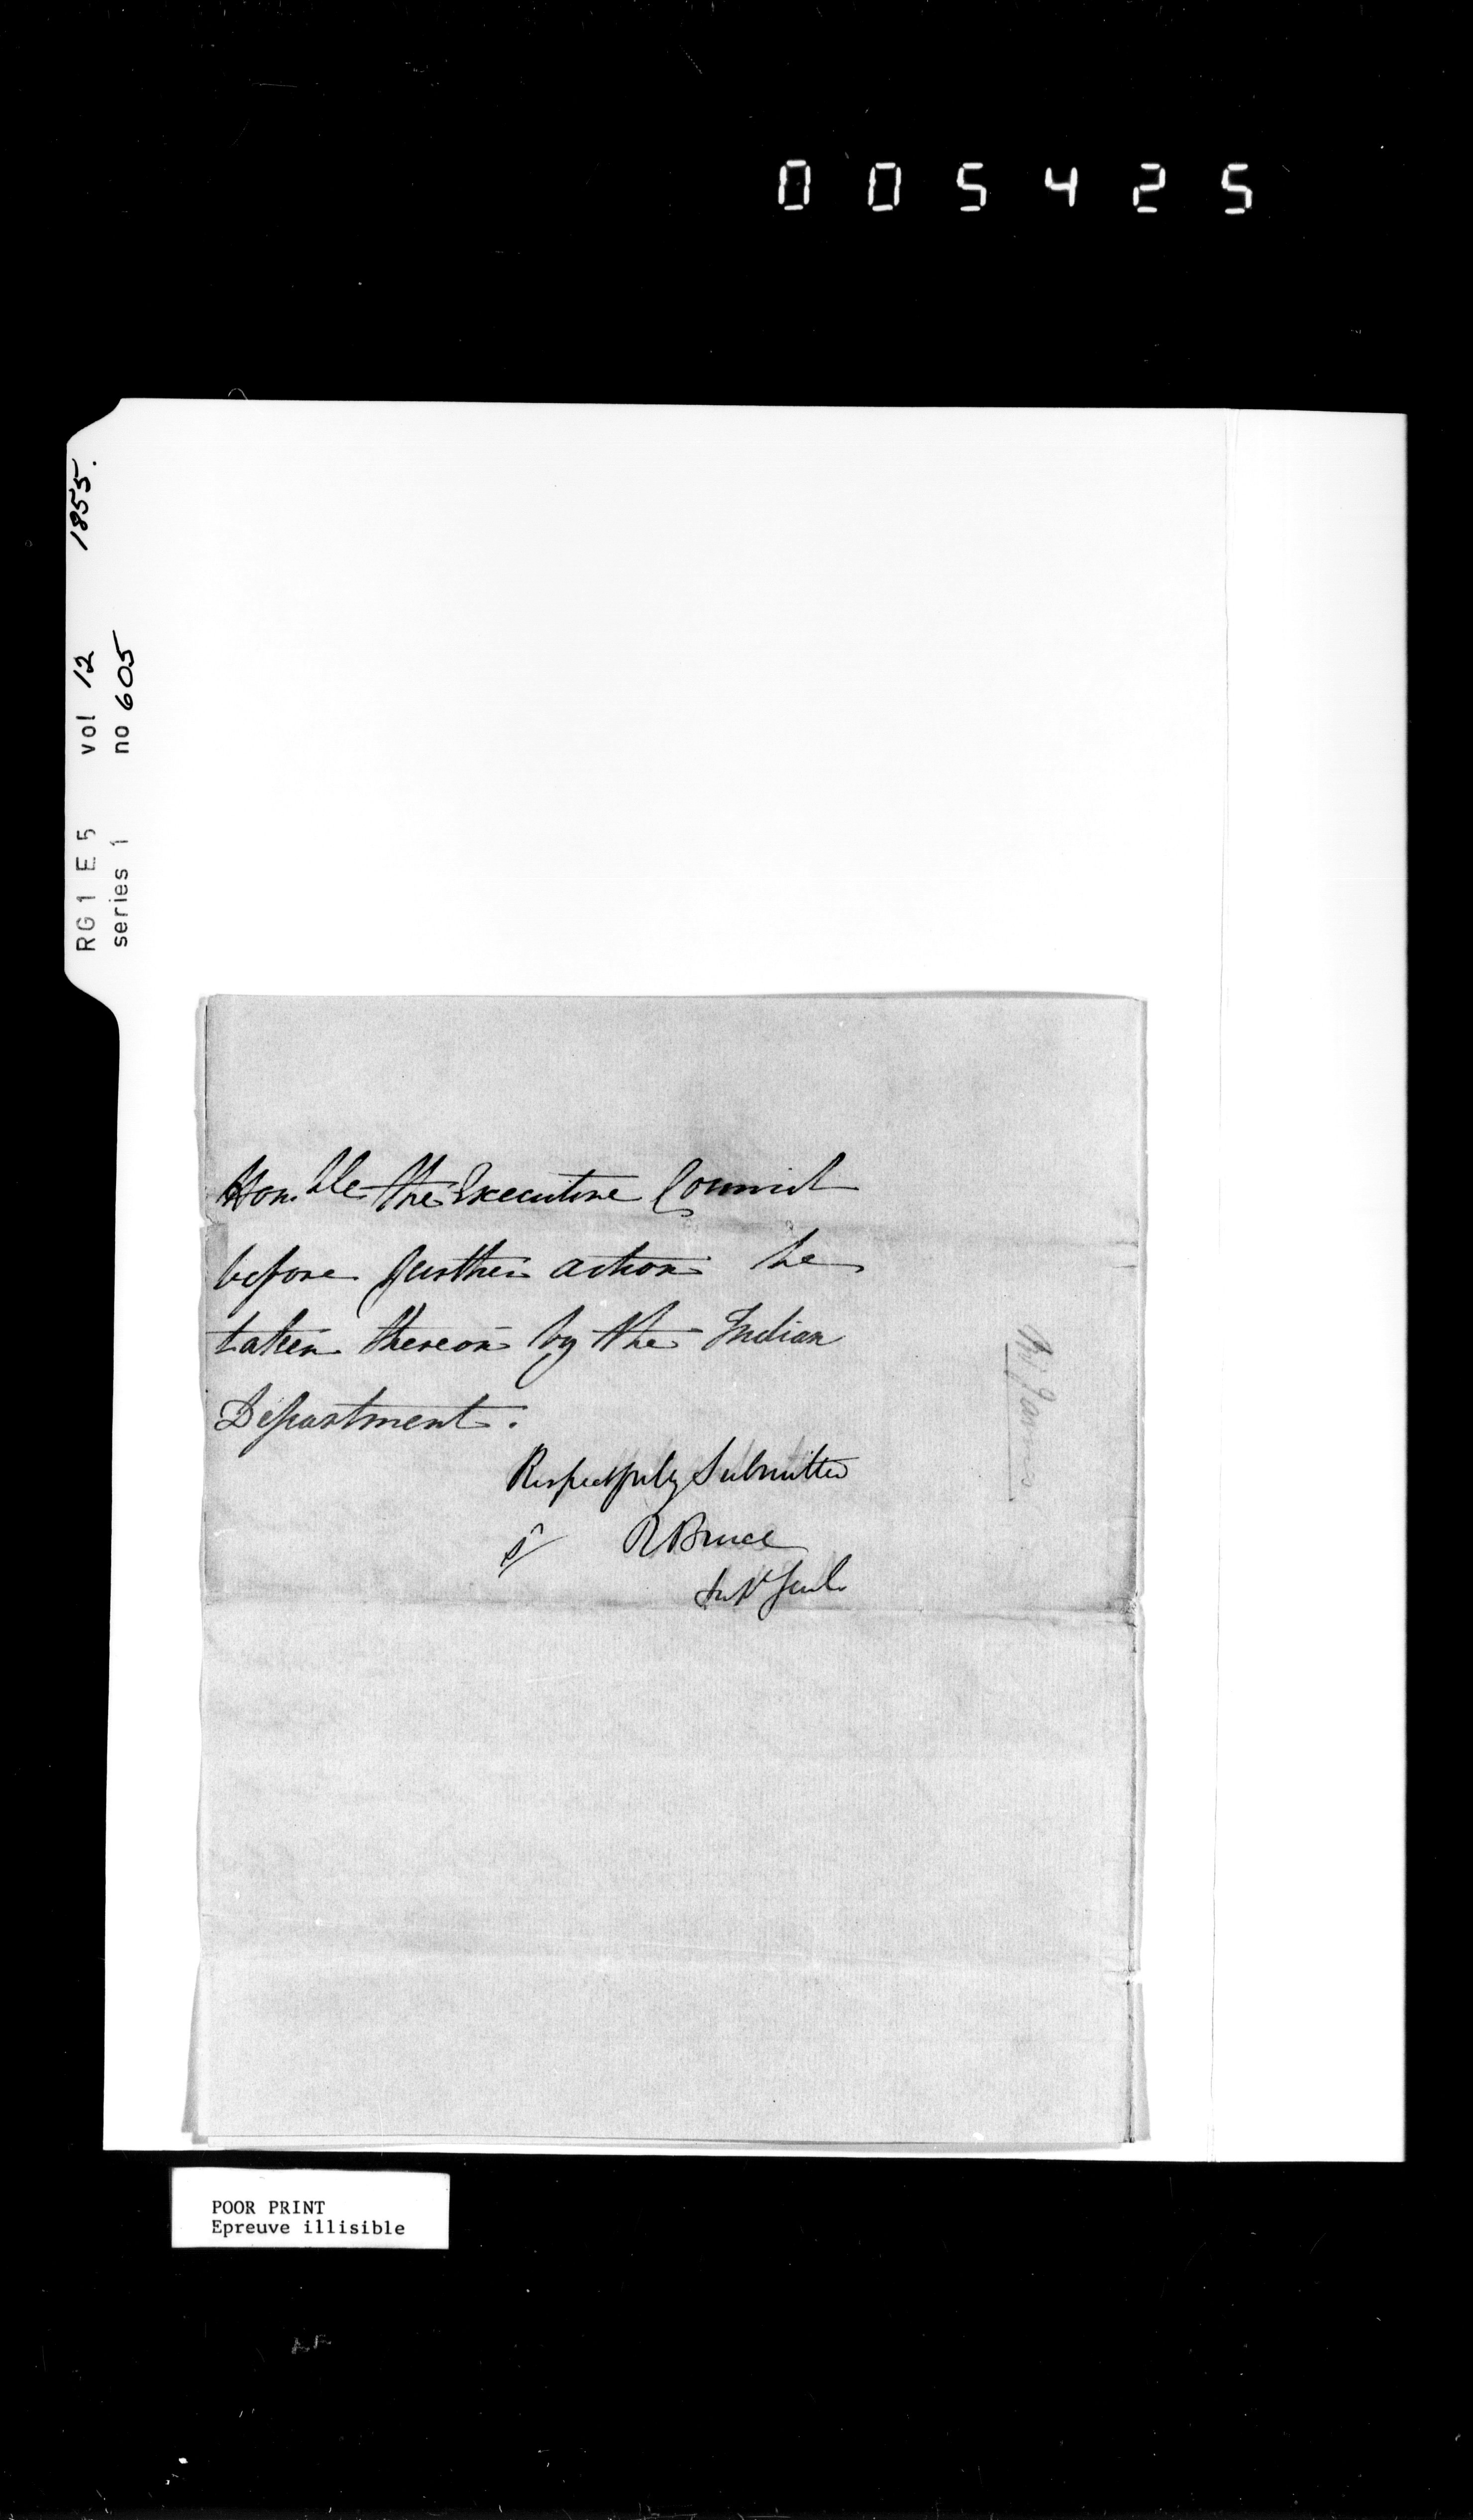 005425
RG1 E5 vol 12 1855.
series 1 no 605
Hon.ble the Executive Council
before further action be
taken thereon by the Indian
Department.
Respectfuly Submitted
R Bruce
Supt Genl
POOR PRINT
Epreuve illisible